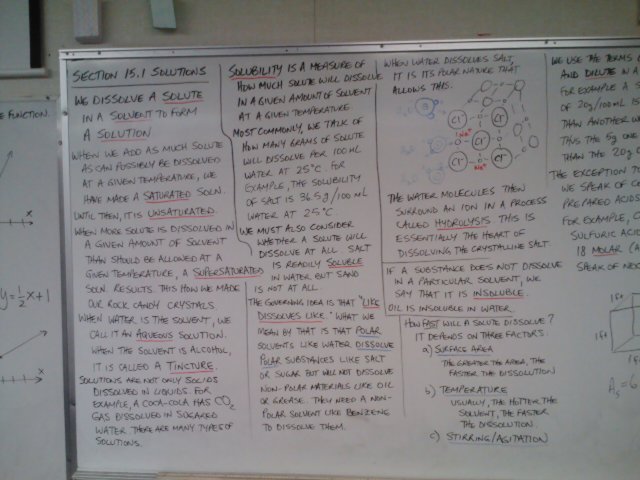 SECTION 15.1 SOLUTIONS
WE DISSOLVE A SOLUTE
IN A SOLVENT TO FORM
A SOLUTION.
WHEN WE ADD AS MUCH SOLUTE
AS CAN POSSIBLY BE DISSOLVED
AT A GIVEN TEMPERATURE, WE
HAVE MADE A SATURATED SOLN.
UNTIL THEN, IT IS UNSATURATED.
WHEN MORE SOLUTE IS DISSOLVED IN
A GIVEN AMOUNT OF SOLVENT
THAN SHOULD BE ALLOWED AT A
GIVEN TEMPERATURE, A SUPERSATURATED
SOLN. RESULTS. THIS HOW WE MADE
OUR ROCK CANDY CRYSTALS.
WHEN WATER IS THE SOLVENT, WE
CALL IT AN AQUEOUS SOLUTION.
WHEN THE SOLVENT IS ALCOHOL,
IT IS CALLED A TINCTURE.
SOLUTIONS ARE NOT ONLY SOLIDS
DISSOLVED IN LIQUIDS. FOR
EXAMPLE, A COCA-COLA HAS CO2
GAS DISSOLVED IN SUGARED
WATER. THERE ARE MANY TYPES OF
SOLUTIONS.
SOLUBILITY IS A MEASURE OF
HOW MUCH SOLUTE WILL DISSOLVE
IN A GIVEN AMOUNT OF SOLVENT
AT A GIVEN TEMPERATURE.
MOST COMMONLY, WE TALK OF
HOW MANY GRAMS OF SOLUTE
WILL DISSOLVE PER 100 ML
WATER AT 25°C. FOR
EXAMPLE, THE SOLUBILITY
OF SALT IS 36.5g/100 mL
WATER AT 25°C
WE MUST ALSO CONSIDER
WHETHER A SOLUTE WILL
DISSOLVE AT ALL SALT
IS READILY SOLUBLE
IN WATER BUT SAND
IS NOT AT ALL.
THE GOVERNING IDEA IS THAT "LIKE
DISSOLVES LIKE." WHAT WE
MEAN BY THAT IS THAT POLAR
SOLVENTS LIKE WATER DISSOLVE
POLAR SUBSTANCES LIKE SALT
OR SUGAR BUT WILL NOT DISSOLVE
NON-POLAR MATERIALS LIKE OIL
OR GREASE. THEY NEED A NON-
POLAR SOLVENT LIKE BENZENE
TO DISSOLVE THEM.
WHEN WATER DISSOLVES SALT,
IT IS ITS POLAR NATURE THAT
ALLOWS THIS.
Cl-
Cl-
Na+
Cl-
Cl-
Na+
THE WATER MOLECULES THEN
SURROUND AN ION IN A PROCESS
CALLED HYDROLYSIS THIS IS
ESSENTIALLY THE HEART OF
DISSOLVING THE CRYSTALLINE SALT
IF A SUBSTANCE DOES NOT DISSOLVE
IN A PARTICULAR SOLVENT, WE
SAY THAT IT IS INSOLUBLE.
OIL IS INSOLUBLE IN WATER.
HOW FAST WILL A SOLUTE DISSOLVE?
IT DEPENDS ON THREE FACTORS:
a) SURFACE AREA
THE GREATER THE AREA, THE
FASTER THE DISSOLUTION
b) TEMPERATURE
USUALLY, THE HOTTER THE
SOLVENT, THE FASTER
THE DISSOLUTION.
c) STIRRING/AGITATION
WE USE THE TERMS
AND DILUTE IN A
FOR EXAMPLE A S
OF 20g/100mL
THAN ANOTHER W
THUS THE 5g ONE
THAN THE 20g
THE EXCEPTION TO
WE SPEAK OF C
PREPARED ACIDS
FOR EXAMPLE, C
SULFURIC A
18 MOLAR
SPEAK OF NE
1ft
1ft
As = 6
E FUNCTION.
x
y = 1/2 x + 1
x